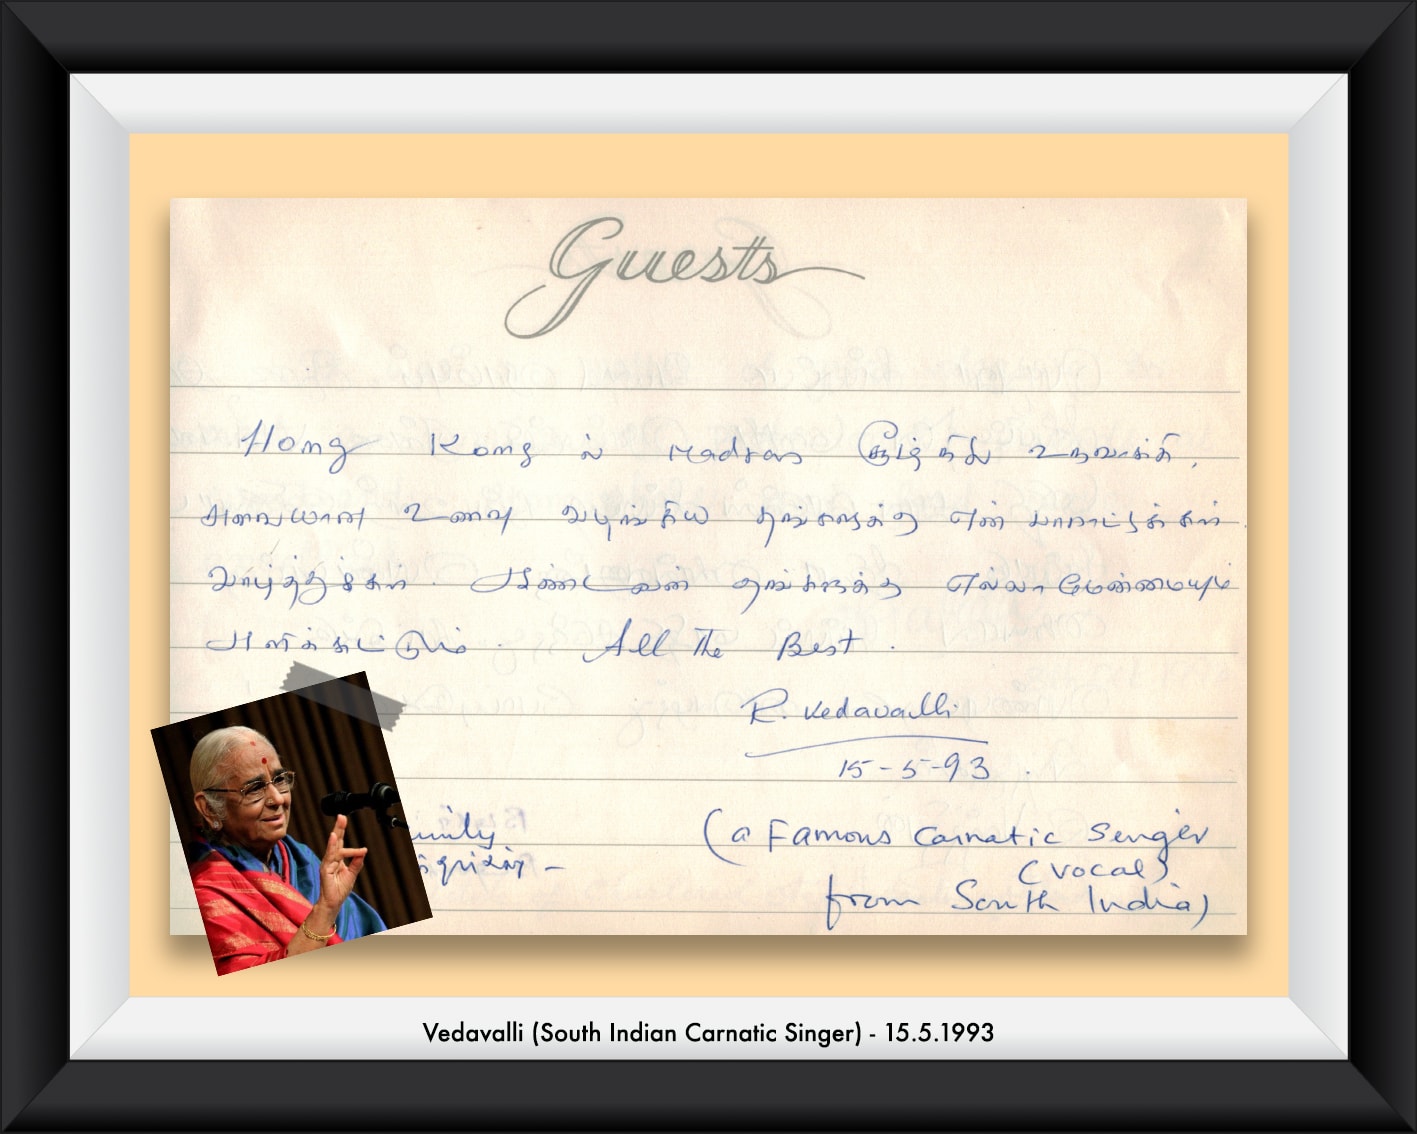 Guests
Hong Kong ல் Madras சூழ்நிலை உருவாக்கி,
சுவையான உணவு வழங்கிய தங்களுக்கு என் பாராட்டுக்கள்.
வாழ்த்துக்கள். ஆண்டவன் தங்களுக்கு எல்லா மேன்மையும்
அளிக்கட்டும். All The Best.
R. Vedavalli
15-5-93.
(a Famous Carnatic Senger
(vocal)
from South India)
Vedavalli (South Indian Carnatic Singer) - 15.5.1993